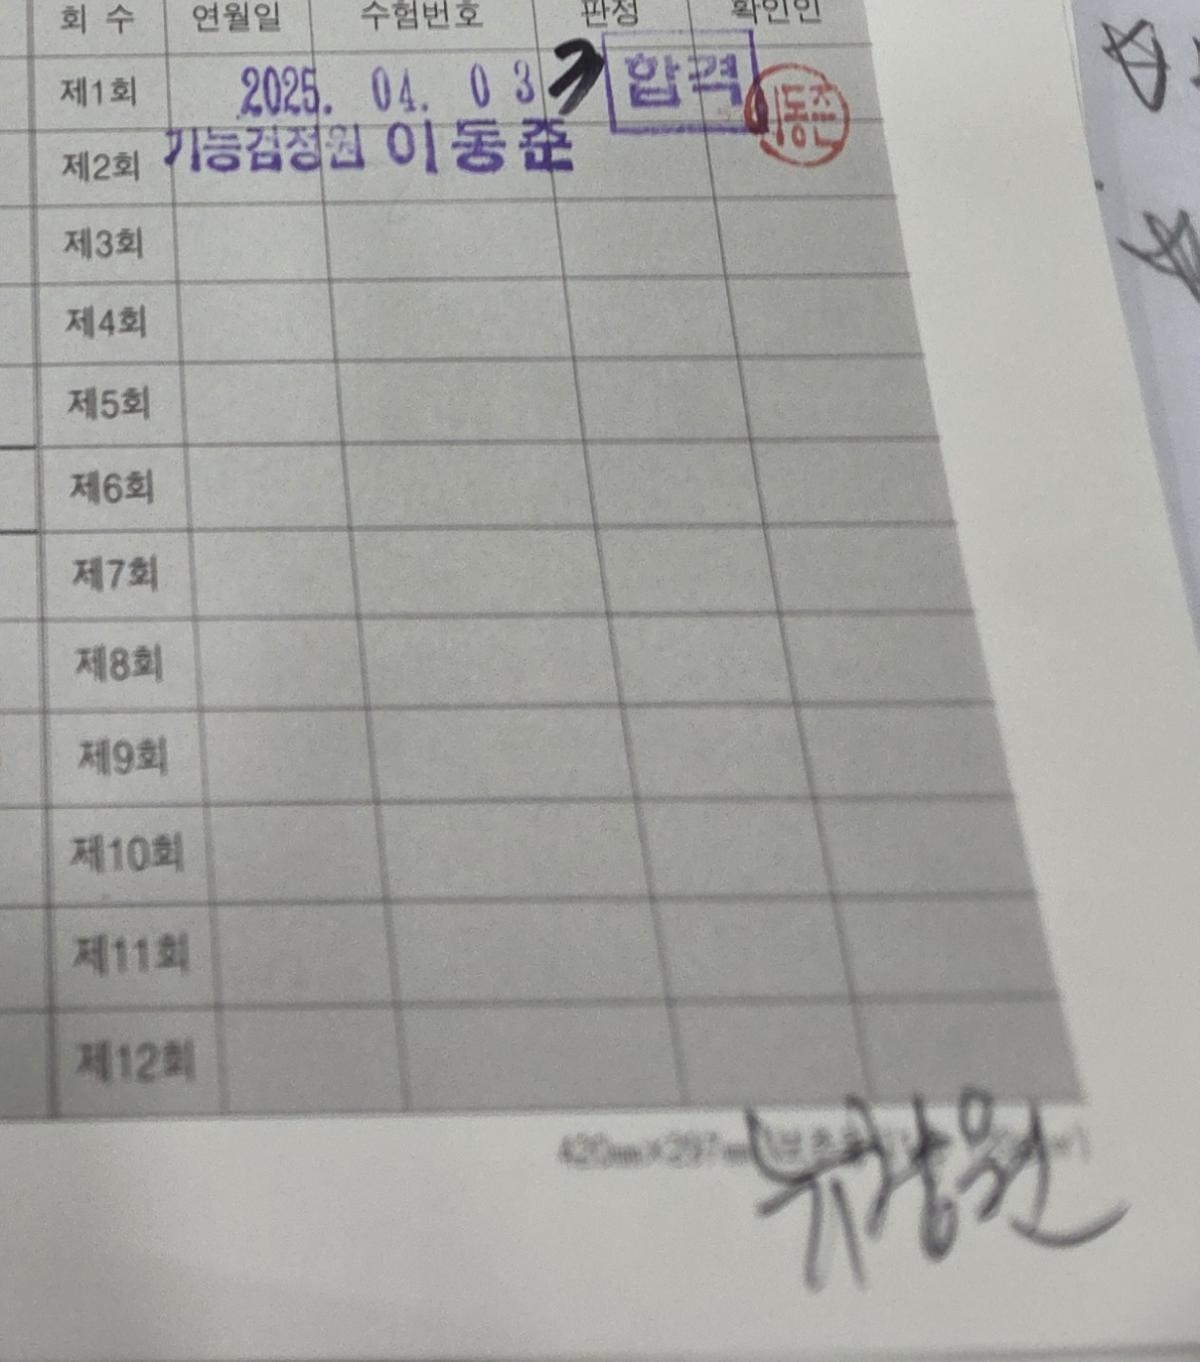 회 수 연월일 수험번호 판정 확인인
제1회 2025. 04. 03 7 합격 이동준
제2회 기능검정원 이동준
제3회
제4회
제5회
제6회
제7회
제8회
제9회
제10회
제11회
제12회
420㎜×297㎜